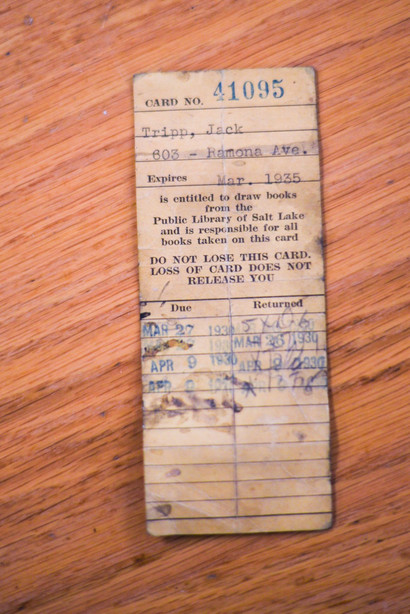 CARD NO. 41095
Tripp, Jack
603 - Ramona Ave.
Expires Mar. 1935
is entitled to draw books
from the
Public Library of Salt Lake
and is responsible for all
books taken on this card
DO NOT LOSE THIS CARD.
LOSS OF CARD DOES NOT
RELEASE YOU
Due Returned
MAR 27 1930
MAR 26 1930
APR 9 1930